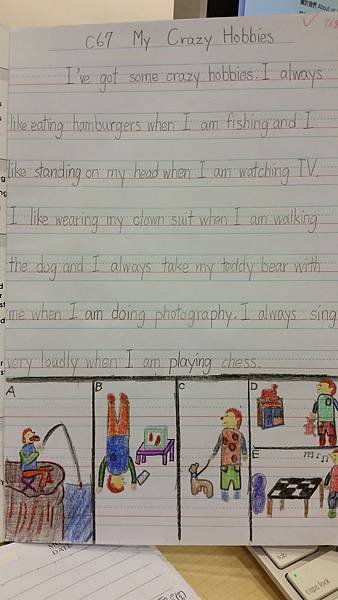 C67 My Crazy Hobbies
I've got some crazy hobbies. I always
like eating hamburgers when I am fishing and I
like standing on my head when I am watching TV.
I like wearing my clown suit when I am walking
the dog and I always take my teddy bear with
me when I am doing photography. I always sing
very loudly when I am playing chess.
A
B
C
D
E
tab
caps lock